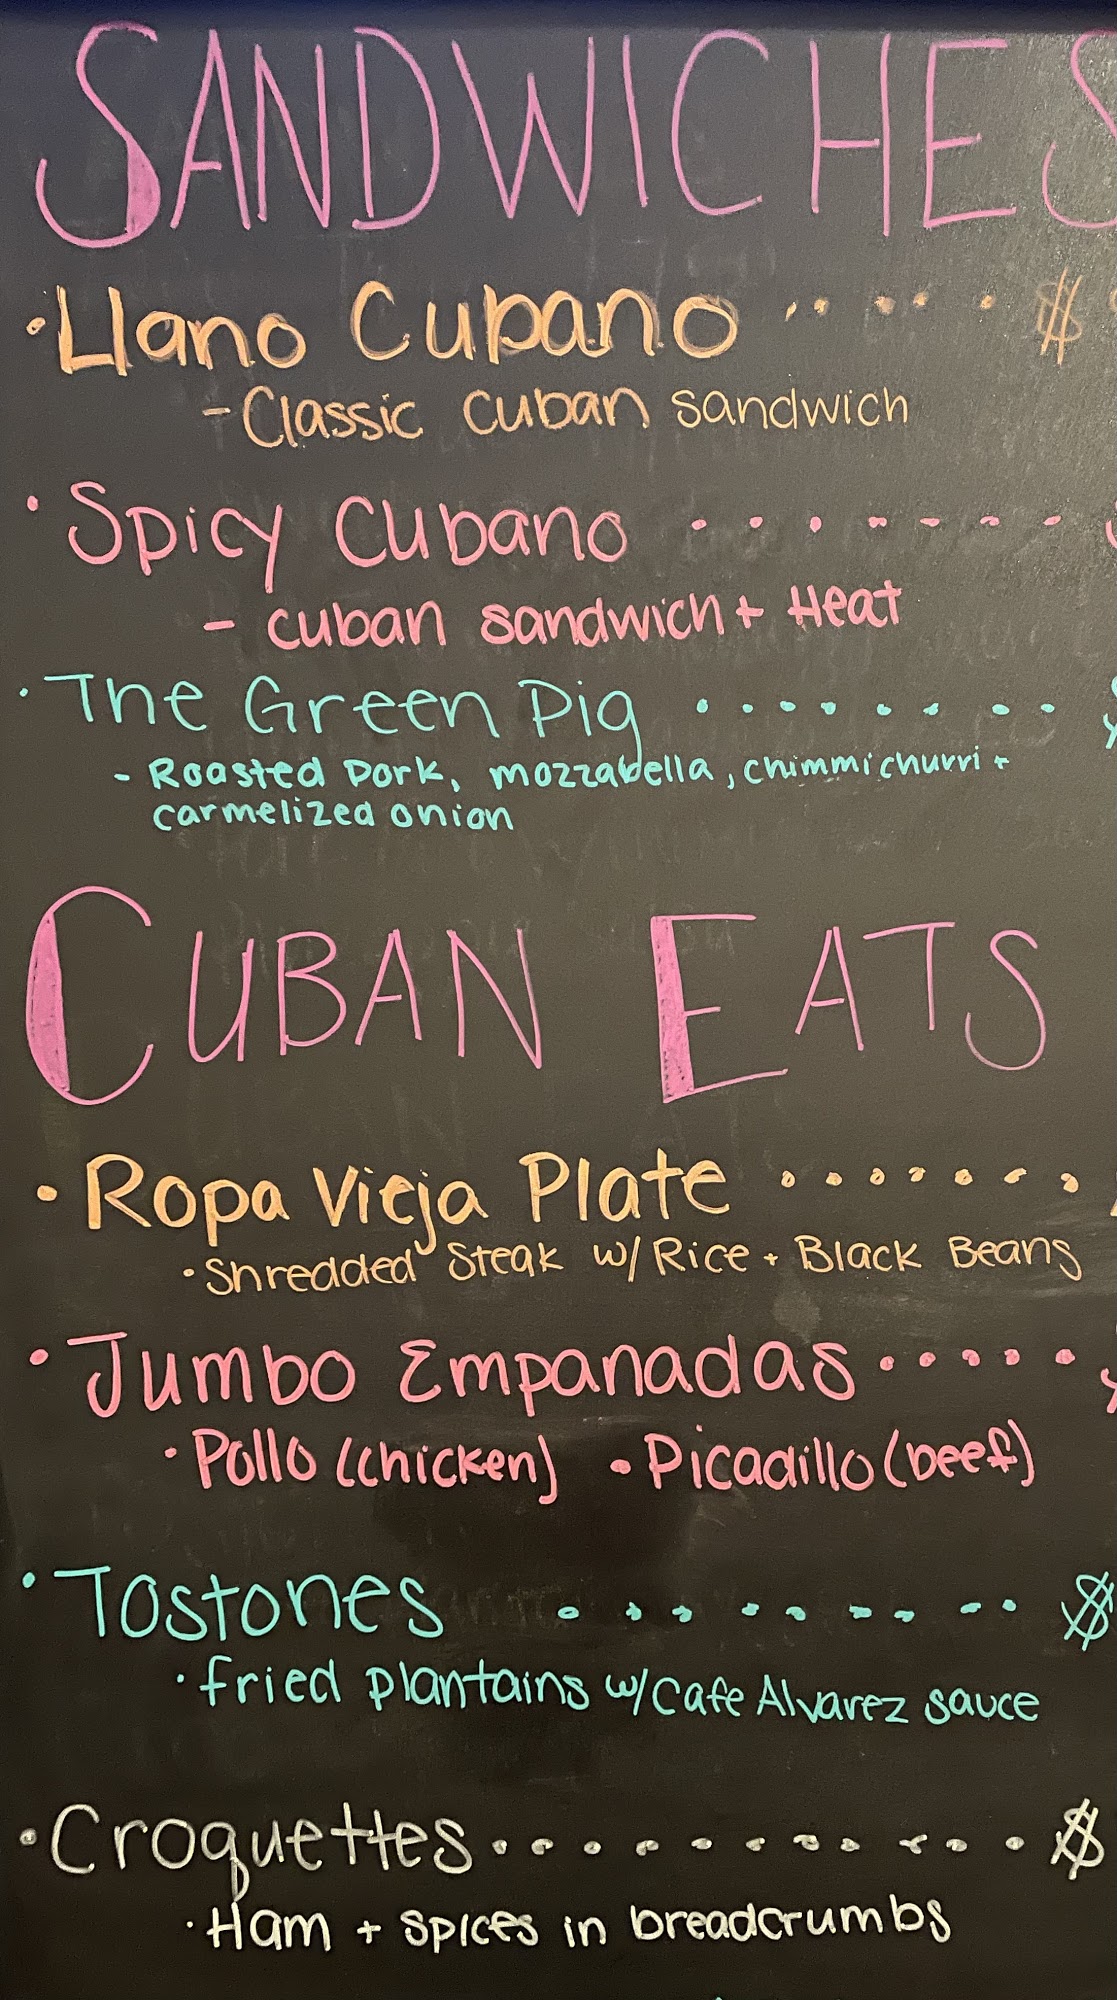 SANDWICHES
• Llano Cubano . . . . . $
- Classic cuban sandwich
• Spicy Cubano . . . . . . .
- cuban sandwich + Heat
• The Green Pig . . . . . . . .
- Roasted Pork, mozzabella, chimmichurri +
carmelized onion
CUBAN EATS
• Ropa Vieja Plate . . . . . . .
• Shredded Steak w/ Rice + Black Beans
• Jumbo Empanadas . . . . .
• Pollo (chicken) • Picadillo (beef)
• Tostones . . . . . . . . . $
• fried plantains w/ Cafe Alvarez sauce
• Croquettes . . . . . . . . . . $
• Ham + spices in breadcrumbs